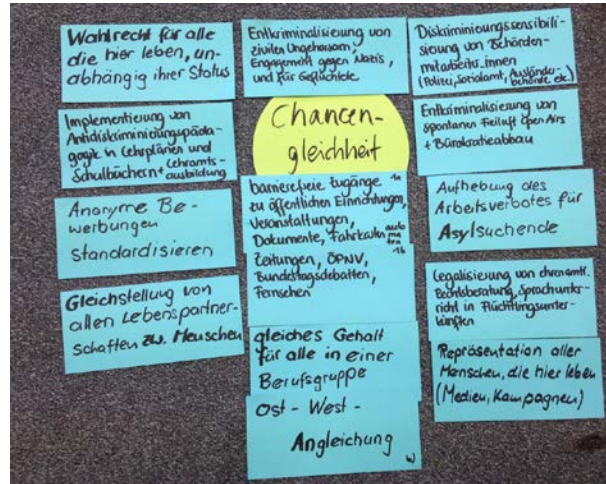 Wahlrecht für alle
die hier leben, un-
abhängig ihrer Status
Implementierung von
Antidiskriminierungspäda-
gogik in Lehrplänen und
Schulbüchern + Lehramts-
ausbildung
Anonyme Be-
werbungen
Standardisieren
Gleichstellung von
allen Lebenspartner-
schaften zw. Menschen
Entkriminalisierung von
zivilen Ungehorsam,
Engagement gegen Nazis,
und für Geflüchtete
Chancen-
gleichheit
barrierefreie Zugänge
zu öffentlichen Einrichtungen,
Veranstaltungen,
Dokumente, Fahrkarten auto
ma
ten
Zeitungen, ÖPNV,
Bundestagsdebatten,
Fernsehen
gleiches Gehalt
für alle in einer
Berufsgruppe
Ost - West -
Angleichung
Diskriminierungssensibili-
sierung von Behörden-
mitarbeits.innen
(Polizei, Sozialamt, Ausländer-
behörde etc.)
Entkriminalisierung von
spontanen Freiluft Open Airs
+ Bürokratieabbau
Aufhebung des
Arbeitsverbotes für
Asylsuchende
Legalisierung von ehrenamtl.
Rechtsberatung, Sprachunter-
richt in Flüchtlingsunter-
künften
Repräsentation aller
Menschen, die hier leben
(Medien, Kampagnen)